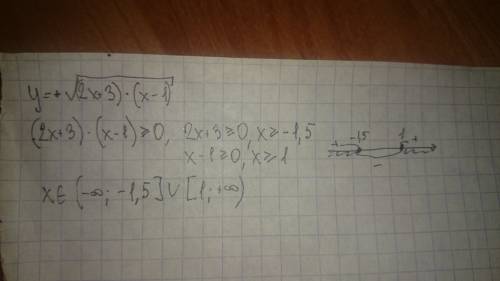 y=+√(2x+3)·(x-1)
(2x+3)·(x-1)≥0, 2x+3≥0, x≥-1,5
x-1≥0, x≥1
+ -1,5 - 1 +
x∈(-∞; -1,5]∪[1; +∞)